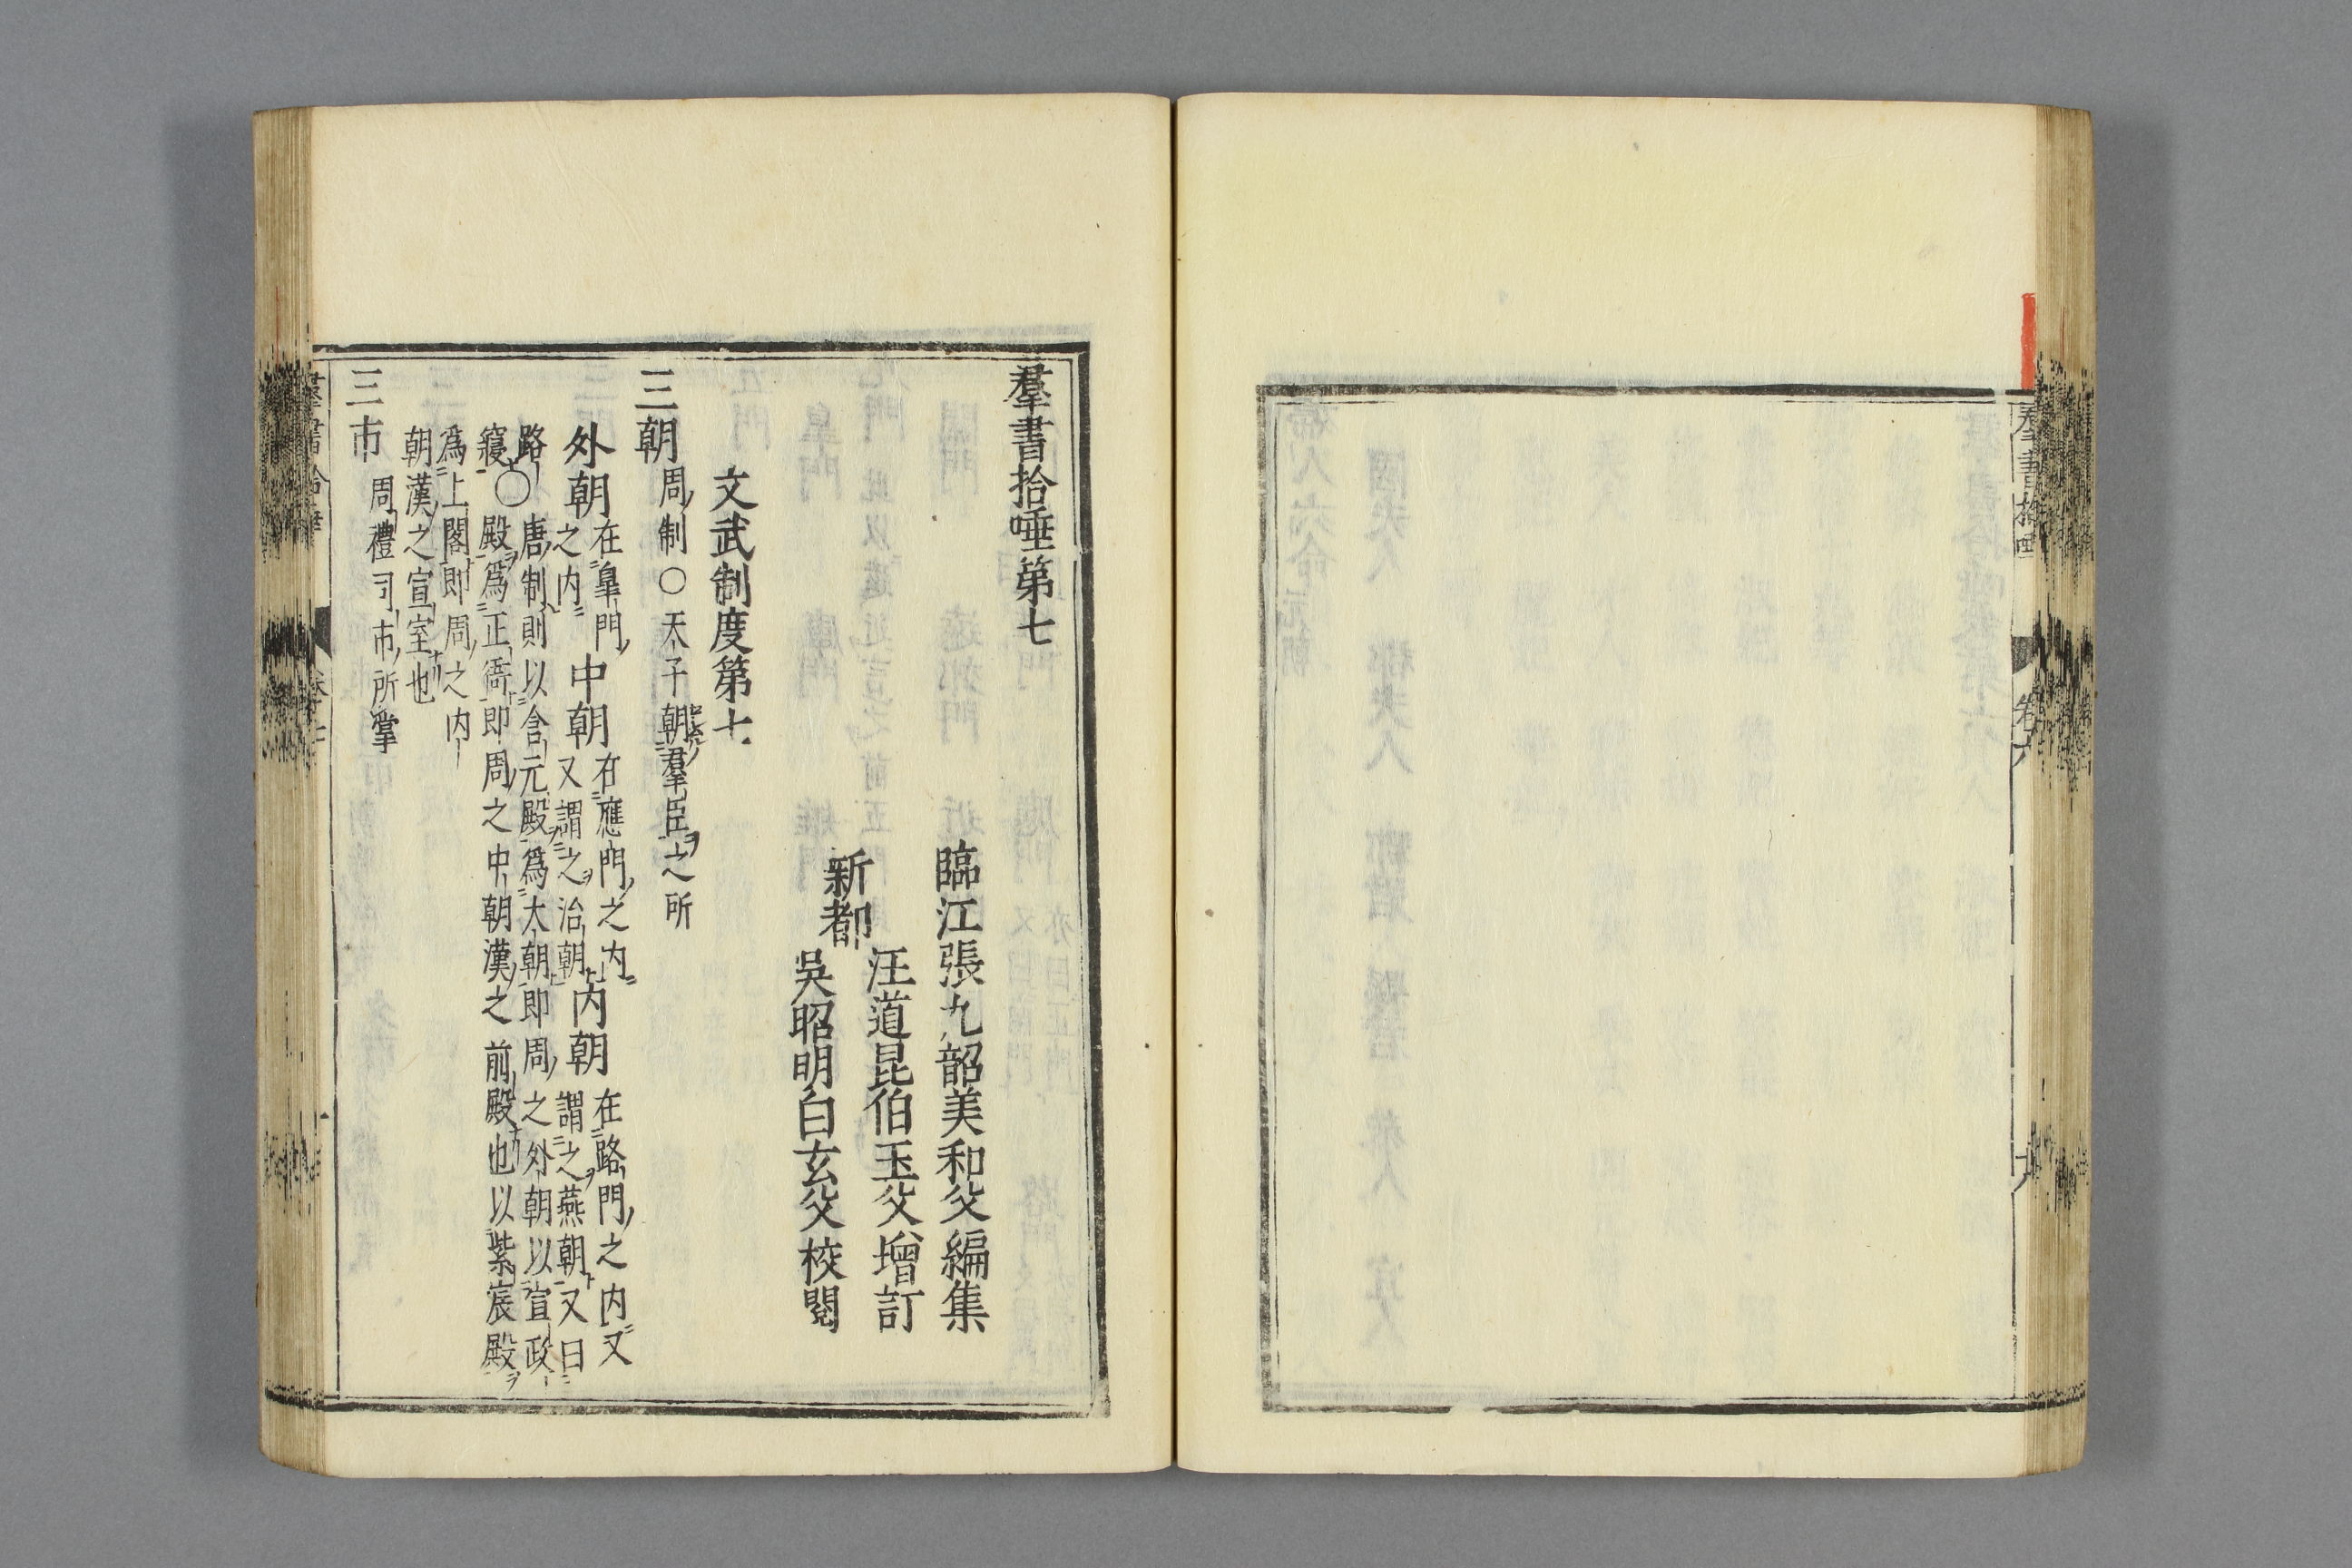 羣書拾唾 卷六
羣書拾唾第七
臨江張九韶美和父編集
新都
汪道昆伯玉父增訂
吳昭明白玄父校閱
文武制度第七
三朝 周制○天子朝羣臣之所
外朝 在臯門之内 中朝 在應門之内又謂之治朝 内朝 在路門之内又謂之燕朝又曰
路寢○唐制則以含元殿爲大朝即周之外朝以宣政殿爲正衙即周之中朝漢之前殿也以紫宸殿
爲上閤即周之内朝漢之宣室也
三市 周禮司市所掌
羣書拾唾 卷七 一